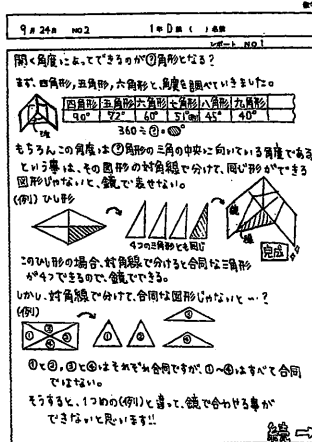 9月24日 NO2 1年D組( )名前
レポート NO1
開く角度によってできるのが?角形となる?
まず、四角形,五角形,六角形と、角度を調べていきました。
四角形 五角形 六角形 七角形 八角形 九角形
90° 72° 60° 51° 45° 40°
360÷?=
もちろんこの角度は?角形の三角の中央に向いている角度である
という事は、その図形の対角線で分けて、同じ形ができる
図形じゃないと、鏡で表せない。
(例)ひし形
4つの三角形とも同じ
鏡
完成
このひし形の場合、対角線で分けると合同な三角形
が4つできるので、鏡でできる。
しかし、対角線で分けて、合同な図形じゃないと…?
(例)
① ② ③ ④
① ②
③
④
①と②,③と④はそれぞれ合同ですが、①~④はすべて合同
ではない。
そうすると、1つめの(例)と違って、鏡で合わせる事が
できないと思います!!